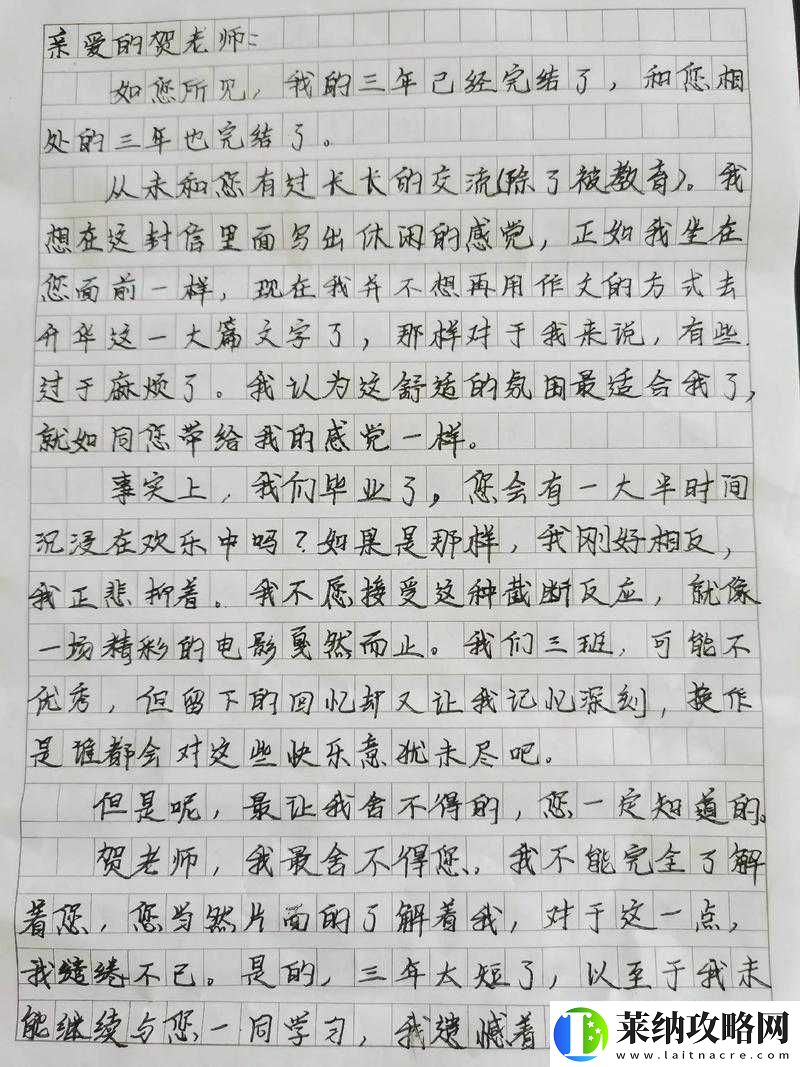 亲爱的贺老师：
如您所见，我的三年已经完结了，和您相
处的三年也完结了。
从未和您有过长长的交流(除了被教育)。我
想在这封信里面写出休闲的感觉，正如我坐在
您面前一样，现在我并不想再用作文的方式去
升华这一大篇文字了，那样对于我来说，有些
过于麻烦了。我认为这舒适的氛围最适合我了，
就如同您带给我的感觉一样。
事实上，我们毕业了，您会有一大半时间
沉浸在欢乐中吗？如果是那样，我刚好相反，
我正悲抑着。我不愿接受这种截断反应，就像
一场精彩的电影戛然而止。我们三班，可能不
优秀，但留下的回忆却又让我记忆深刻，换作
是谁都会对这些快乐意犹未尽吧。
但是呢，最让我舍不得的，您一定知道的。
贺老师，我最舍不得您，我不能完全了解
着您，您当然片面的了解着我，对于这一点，
我缱绻不已。是的，三年太短了，以至于我未
能继续与您一同学习，我遗憾着
莱纳攻略网
www.laitnacre.com